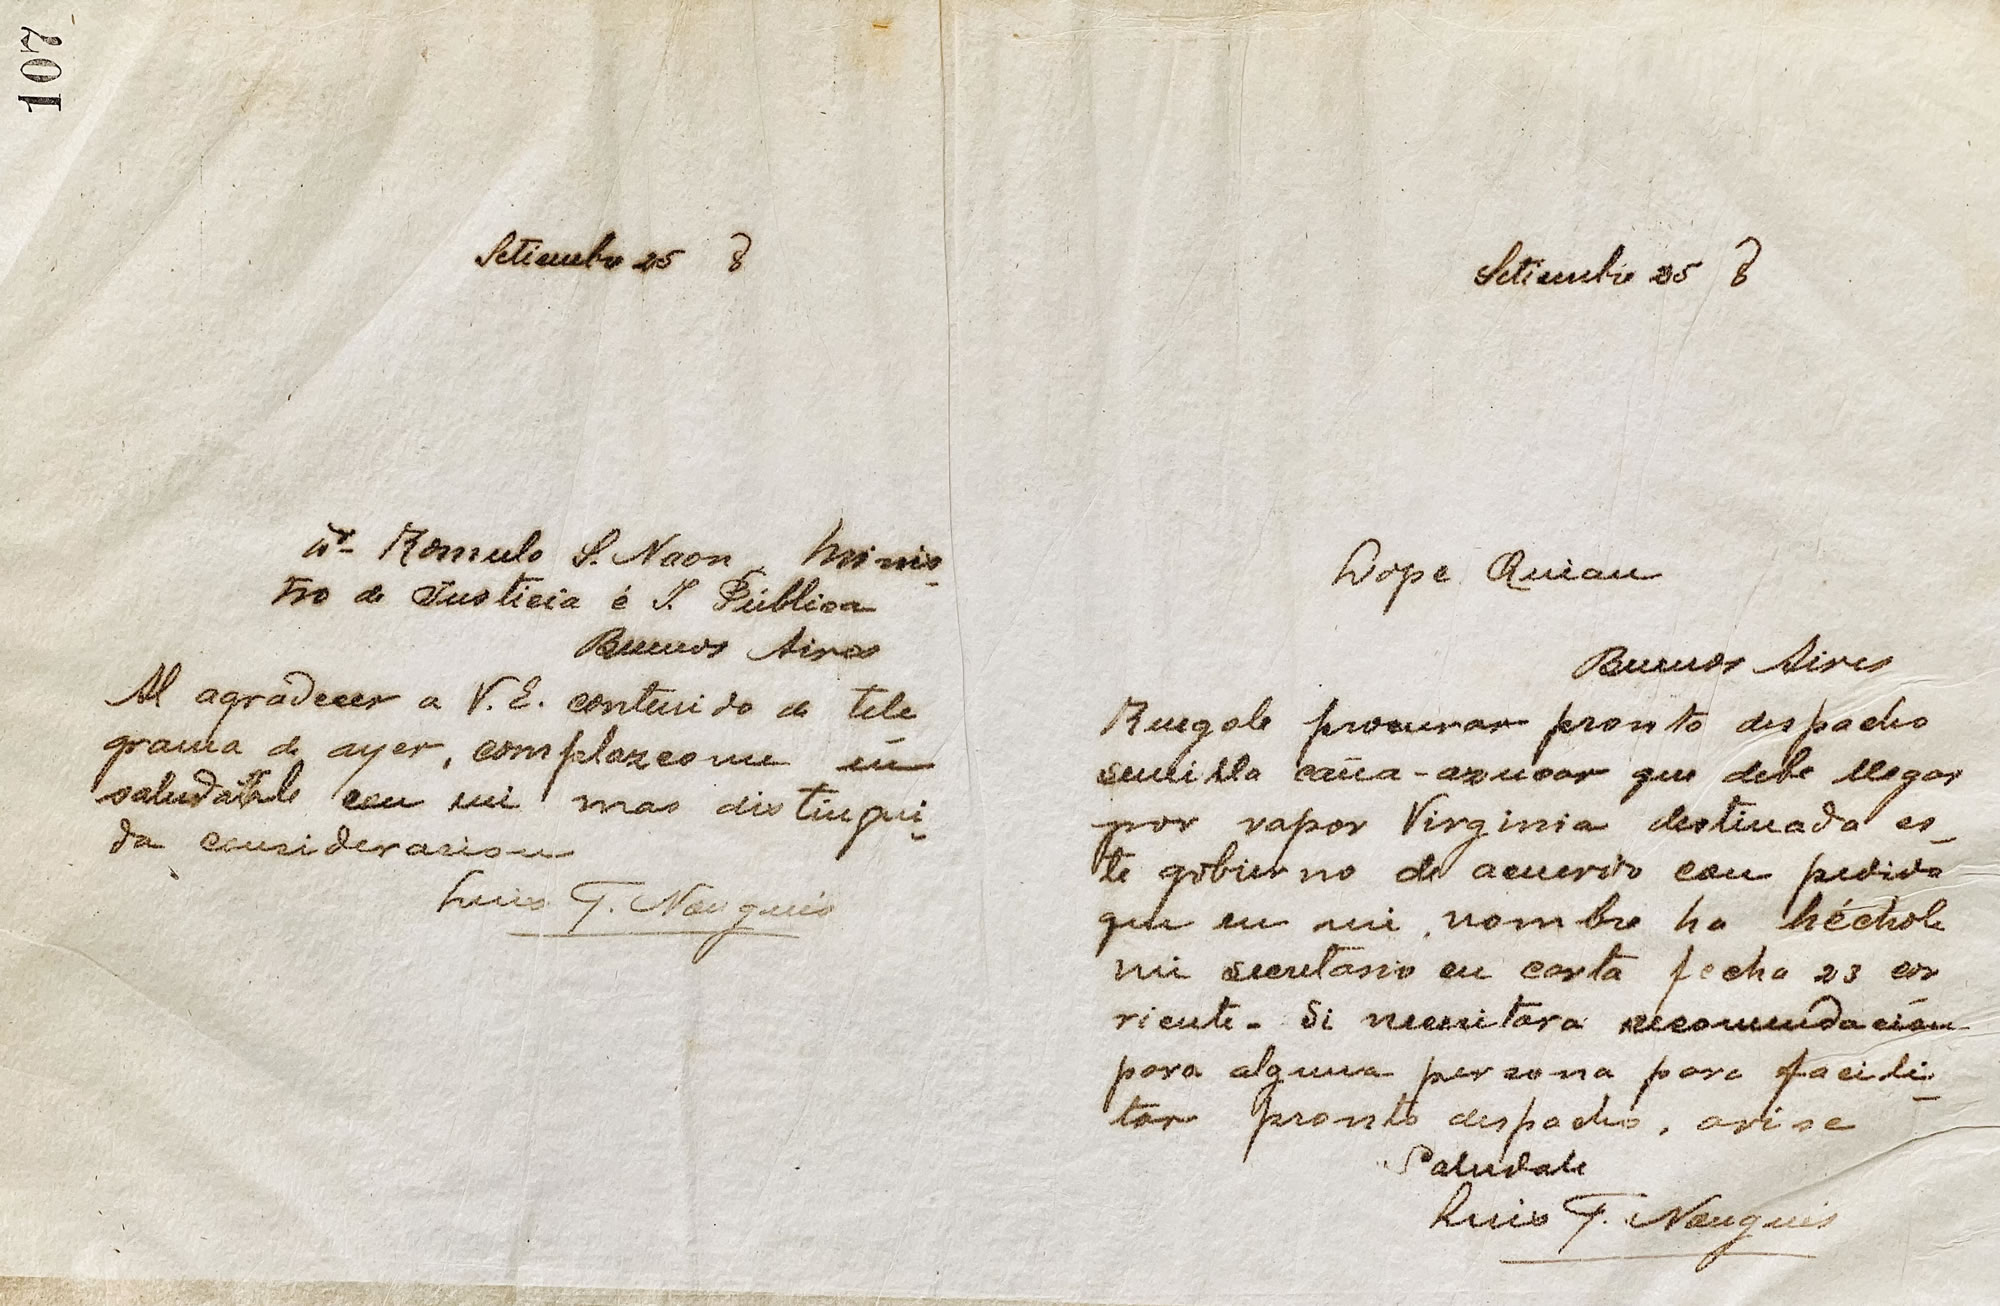 107
Setiembre 25 8
Dr. Romulo S. Naon, Minis-
tro de Justicia é I. Pública
Buenos Aires
Al agradecer a V.E. contenido de tele
grama de ayer, complazcome en
saludarle con mi mas distingui-
da consideracion
Luis F. Nougués
Setiembre 25 8
Lope Quian
Buenos Aires
Ruegole procurar pronto despacho
semilla caña-azucar que debe llegar
por vapor Virginia destinada es-
te gobierno de acuerdo con pedido
que en mi nombre ha héchole
mi secretario en carta fecha 23 cor
riente - Si necesitara recomendación
para alguna persona para facili-
tar pronto despacho, avise
Saludale
Luis F. Nougués